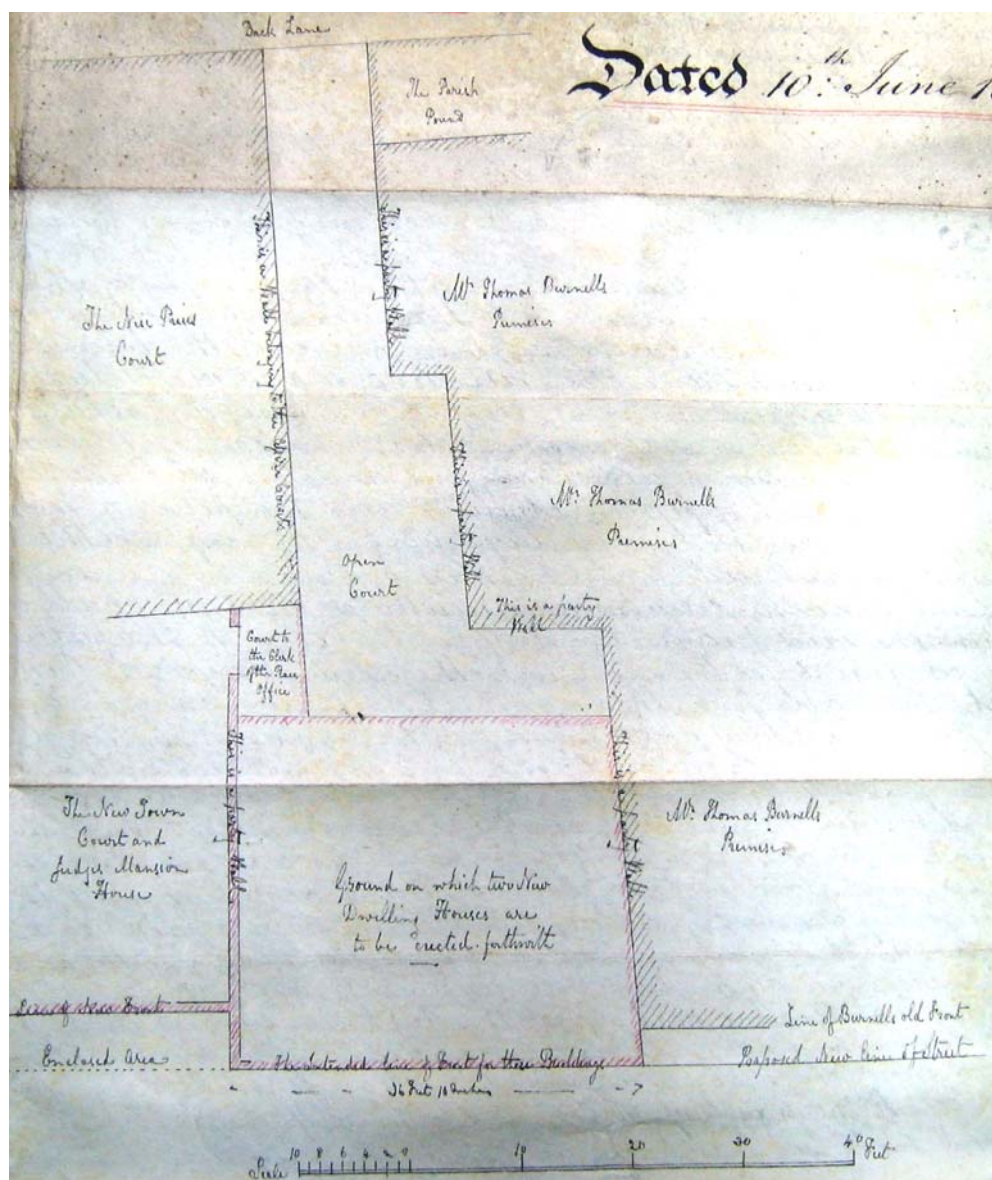 Back Lane
Dated 10.th June 1
The Parish
Pound
This is a Wall belonging to the
This is a party Wall
The Nisi Prius
Court
Mr. Thomas Burnells
Premises
This is a party Wall
Mr. Thomas Burnells
Premises
Open
Court
This is a party
Wall
Court to
the Clerk
of the Peace
Office
This is a party Wall
This is a party Wall
The New Town
Court and
Judges Mansion
House
Mr. Thomas Burnells
Premises
Ground on which two New
Dwelling Houses are
to be Erected forthwith
Line of New Front
Line of Burnells old Front
Enclosed Area
The Intended line of Front for these Buildings
Proposed New line of Street
36 Feet 10 Inches
Scale 10 8 6 4 2 0 10 20 30 40 Feet